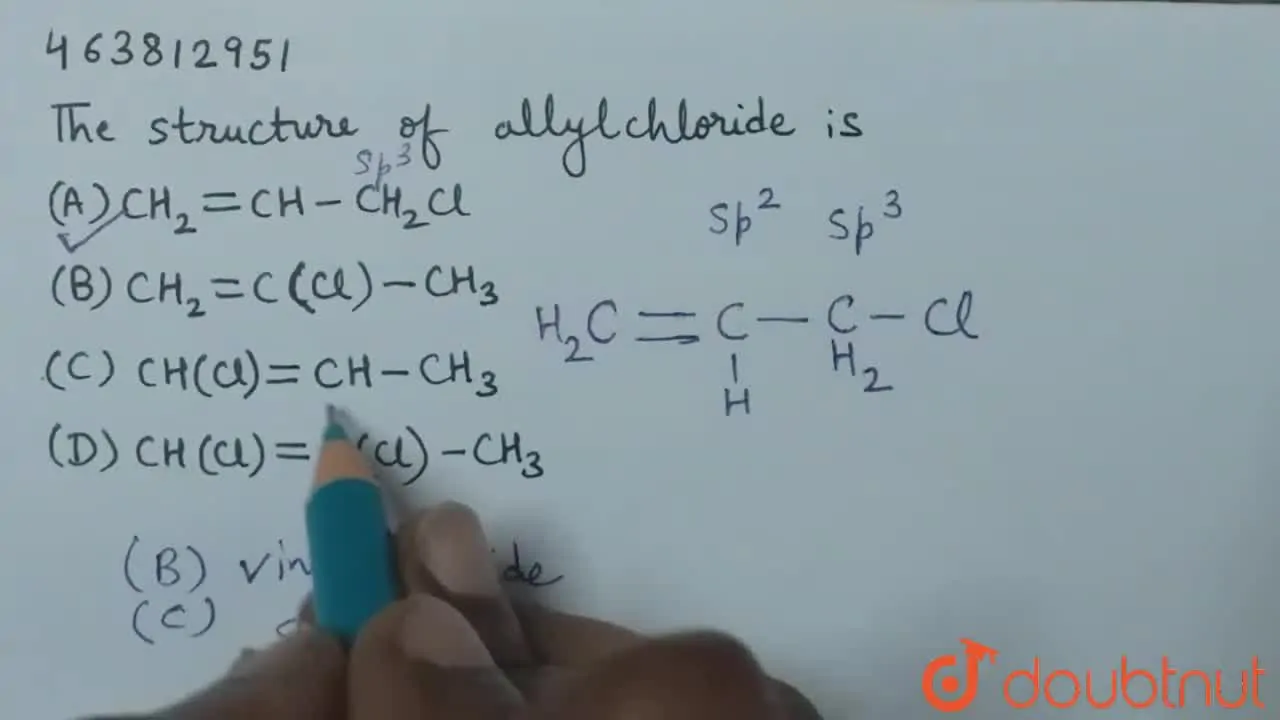 463812951
The structure of allylchloride is
Sp³
(A) CH₂=CH-CH₂Cl
(B) CH₂=C(Cl)-CH₃
(C) CH(Cl)=CH-CH₃
(D) CH(Cl)= (Cl)-CH₃
Sp² Sp³
H₂C=C-C-Cl
H H₂
(B) vin de
(C)
doubtnut